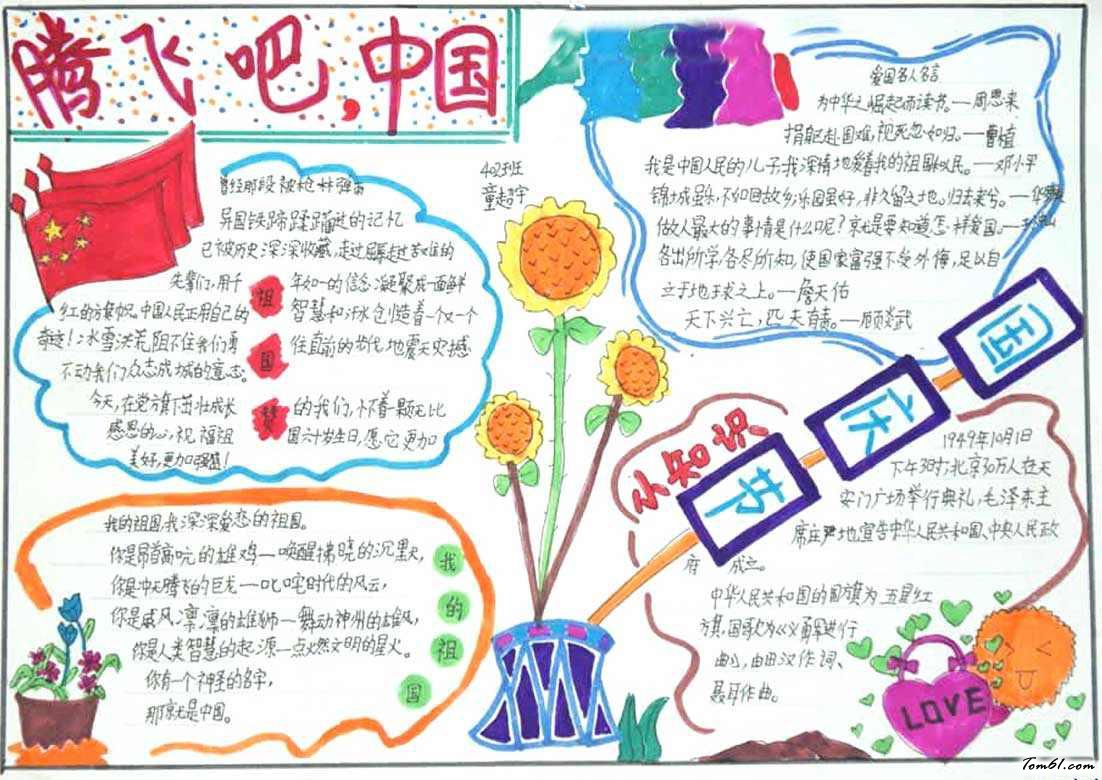 腾飞吧,中国
402班
童超宇
曾经那段被枪林弹雨
异国铁蹄蹂躏过的记忆
已被历史深深收藏,走过屈辱走过苦难的
先辈们,用千年如一的信念凝聚成一面鲜
红的旗帜。中国人民正用自己的智慧和汗水创造着一个又一个
奇迹!冰雪洪荒阻不住我们勇往直前的步伐,地震天灾撼
不动我们众志成城的意志。
今天,在党旗下茁壮成长的我们,怀着一颗无比
感恩的心,祝福祖国六十岁生日,愿它更加
美好,更加强盛!
祖
国
赞
爱国名人名言
为中华之崛起而读书。—周恩来
捐躯赴国难,视死忽如归。—曹植
我是中国人民的儿子,我深情地爱着我的祖国和人民。—邓小平
锦城虽乐,不如回故乡;乐园虽好,非久留之地。归去来兮。—华
做人最大的事情是什么呢?就是要知道怎样爱国。—
各出所学,各尽所知,使国家富强不受外侮,足以自
立于地球之上。—詹天佑
天下兴亡,匹夫有责。—顾炎武
国
庆
节
小知识
1949年10月1日
下午3时,北京30万人在天
安门广场举行典礼,毛泽东主
席庄严地宣告中华人民共和国、中央人民政
府成立。
中华人民共和国的国旗为五星红
旗,国歌为《义勇军进行
曲》,由田汉作词、
聂耳作曲。
我的祖国,我深深爱恋的祖国。
你是昂首高吭的雄鸡—唤醒拂晓的沉默,
你是冲天腾飞的巨龙—叱咤时代的风云,
你是威风凛凛的雄狮—舞动神州的雄风,
你是人类智慧的起源—点燃文明的星火。
你有一个神圣的名字,
那就是中国。
我
的
祖
国
LOVE
Tom61.com